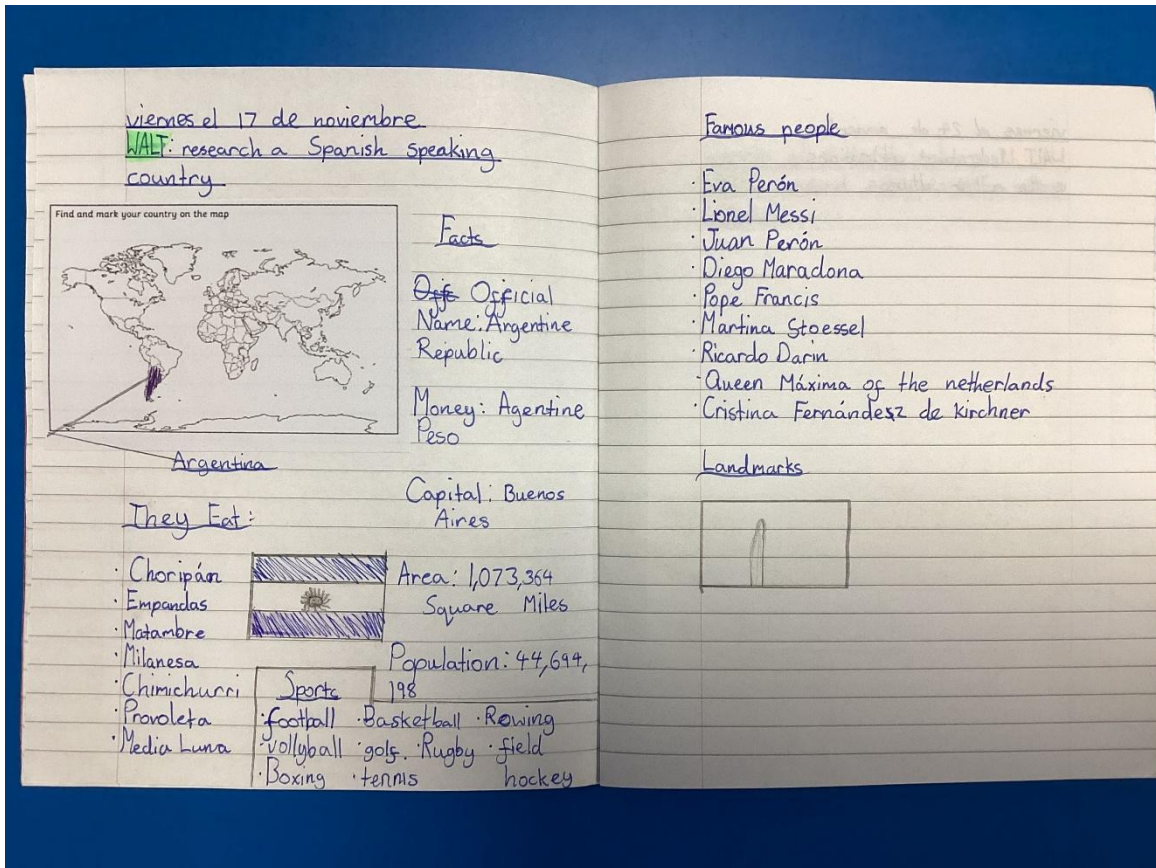 viernes el 17 de noviembre
WALT: research a Spanish speaking
country
Find and mark your country on the map
Argentina
Facts
Offc Official
Name: Argentine
Republic
Money: Agentine
Peso
Capital: Buenos
Aires
Area: 1,073,364
Square Miles
Population: 44,694,
198
They Eat:
· Choripán
· Empandas
· Matambre
· Milanesa
· Chimichurri
· Provoleta
· Media Luna
Sports
· football · Basketball · Rowing
· vollyball · golf · Rugby · field
· Boxing · tennis hockey
Famous people
· Eva Perón
· Lionel Messi
· Juan Perón
· Diego Maradona
· Pope Francis
· Martina Stoessel
· Ricardo Darin
· Queen Máxima of the netherlands
· Cristina Fernández de kirchner
Landmarks